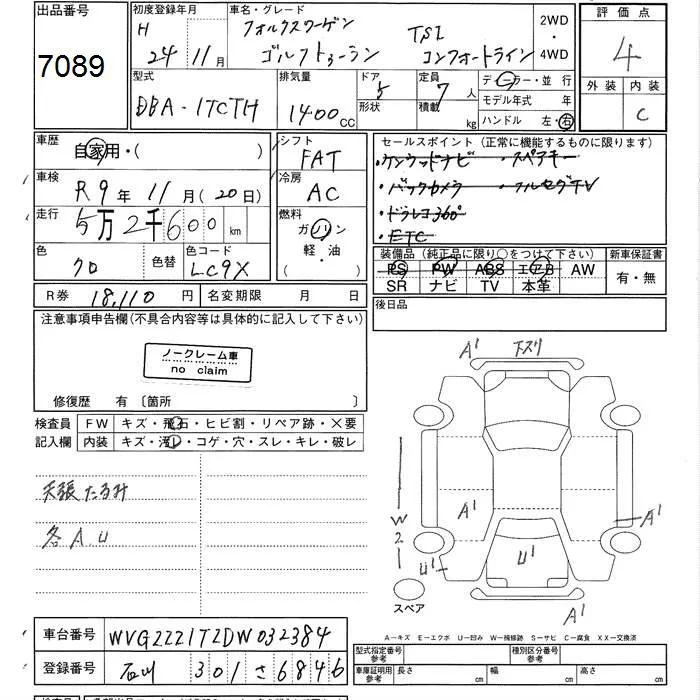 出品番号
7089
初度登録年月
H
24年11月
車名・グレード
フォルクスワーゲン
ゴルフトゥーラン TSI コンフォートライン
2WD
・
4WD
評価点
4
外装 内装
C
型式
DBA-1TCTH
排気量
1400 CC
ドア
5
形状
定員
7人
積載 kg
ディーラー・並行
モデル年式 年
ハンドル 左・右
車歴
自家用・( )
車検
R9年11月(20日)
走行
5万2千600 km
色
クロ
色替
色コード
LC9X
シフト
FAT
冷房
AC
燃料
ガソリン
・
軽・油
( )
セールスポイント(正常に機能するものに限ります)
・ケンウッドナビ ・スペアキー
・バックカメラ ・フルセグTV
・ドラレコ360°
・ETC
装備品(純正品に限り○をつけて下さい)
PS PW ABS エアB AW
SR ナビ TV 本革
新車保証書
有・無
R券 18,110円
名変期限 月 日
後日品
注意事項申告欄(不具合内容等は具体的に記入して下さい)
ノークレーム車
no claim
修復歴 有〔箇所 〕
検査員
記入欄
FW キズ・飛石・ヒビ割・リペア跡・×要
内装 キズ・汚レ・コゲ・穴・スレ・キレ・破レ
天張たるみ
各A.U
A' 下スリ
A'
A'
W2
U'
U'
A'
スペア
A-キズ E-エクボ U-凹み W-補修跡 S-サビ C-腐食 XX-交換済
車台番号
WVGZZZ1TZDW032384
登録番号
石川 301 さ 6846
型式指定番号
参考
種別区分番号
参考
車庫証明用
参考
長さ cm 幅 cm 高さ cm